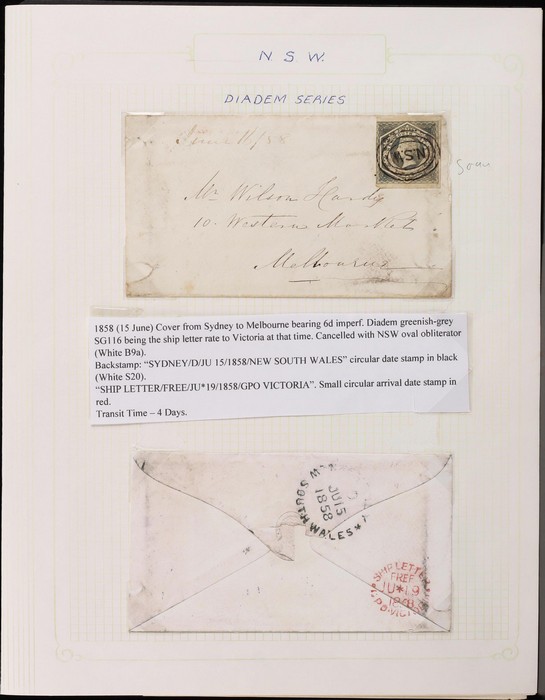 N. S. W.
DIADEM SERIES
June 11/58
N.S.W
Mr Wilson Hardy
10. Western Market
Melbourne
1858 (15 June) Cover from Sydney to Melbourne bearing 6d imperf. Diadem greenish-grey
SG116 being the ship letter rate to Victoria at that time. Cancelled with NSW oval obliterator
(White B9a).
Backstamp: “SYDNEY/D/JU 15/1858/NEW SOUTH WALES” circular date stamp in black
(White S20).
“SHIP LETTER/FREE/JU*19/1858/GPO VICTORIA”. Small circular arrival date stamp in
red.
Transit Time – 4 Days.
JU 15
1858
W SOUTH WALES *
SHIP LETTE
FREE
JU*19
P.O. VICTO